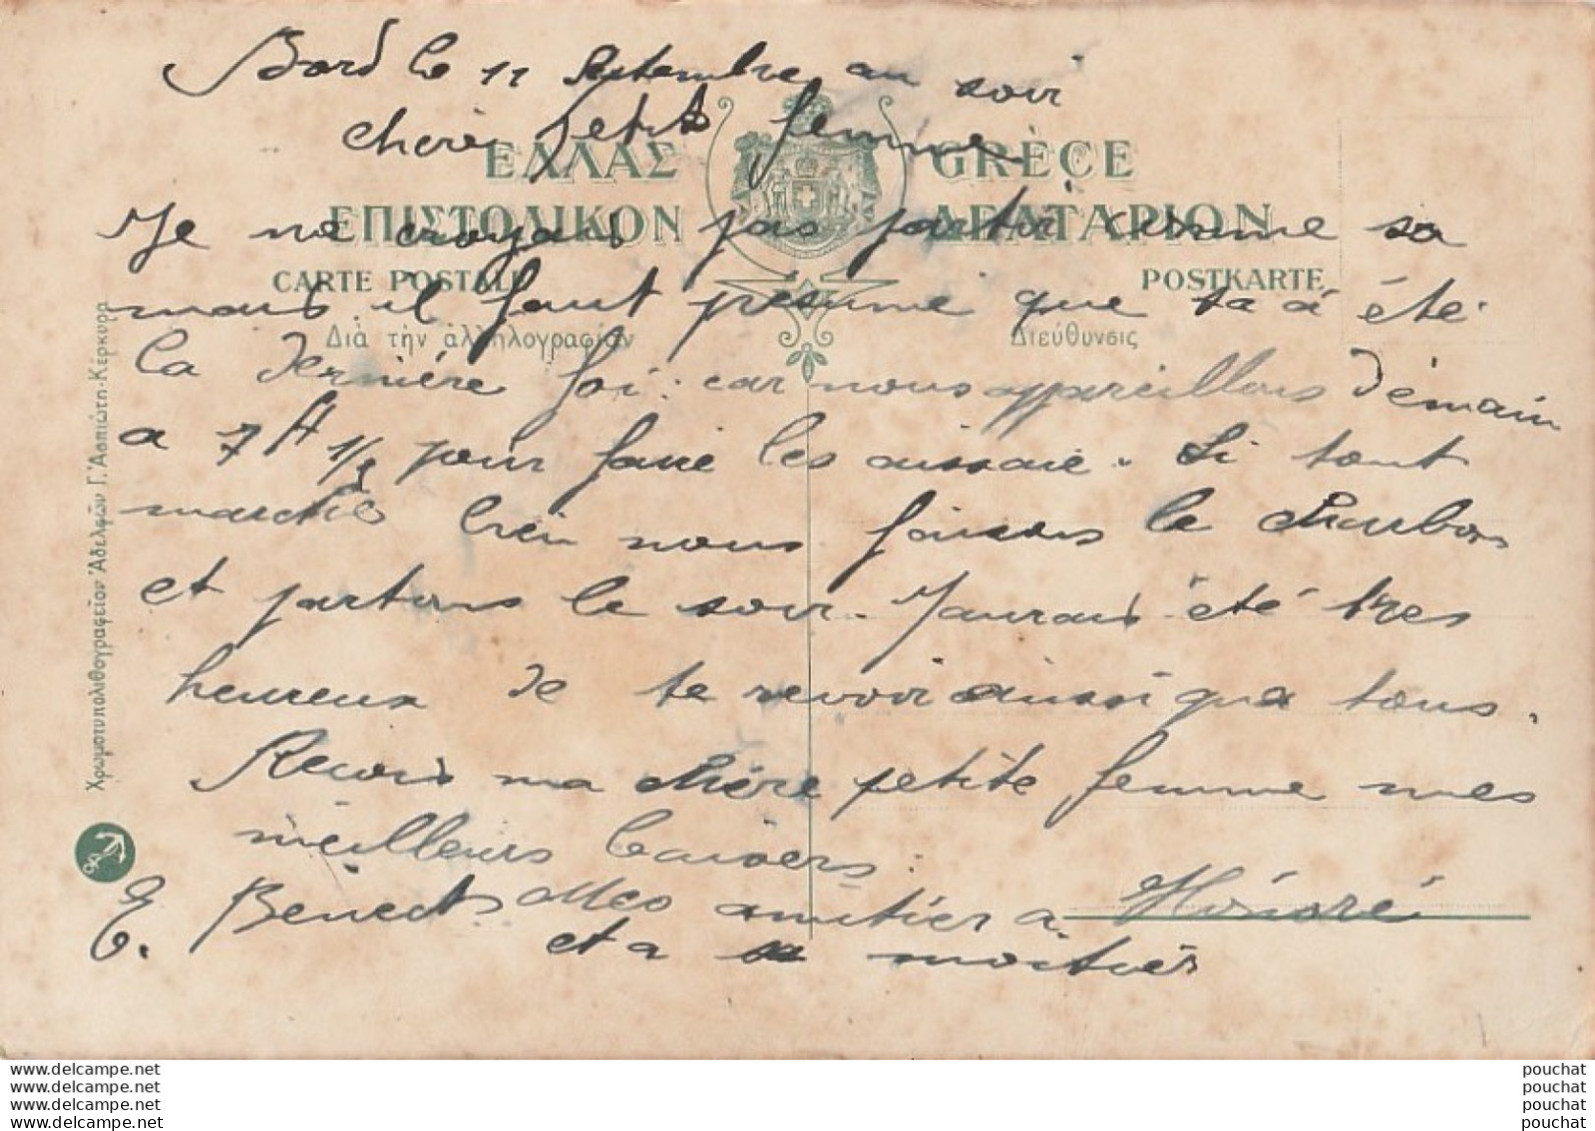 Bord le 11 Septembre au soir
chère petite femme
ΕΛΛΑΣ GRÈCE
ΕΠΙΣΤΟΛΙΚΟΝ ΔΕΛΤΑΡΙΟΝ
CARTE POSTALE POSTKARTE
Διὰ τὴν ἀλληλογραφίαν Διεύθυνσις
Je ne croyais pas partir comme sa
mais il faut presume que sa à été
la dernière foi. car nous appareillons démain
a 7 H 1/2 pour faire les aissaie. Si tout
marche bien nous faisons le charbon
et partons le soir. J'aurais été tres
heureux de te revoir aussi que tous.
Recois ma chère petite femme mes
meilleurs baisers.
E. Benect Mes amitier a Honoré
et a sa moitier
Χρωμοτυπολιθογραφεῖον Ἀδελφῶν Γ. Ἀσπιώτη-Κέρκυρα
www.delcampe.net
www.delcampe.net
www.delcampe.net
www.delcampe.net
pouchat
pouchat
pouchat
pouchat